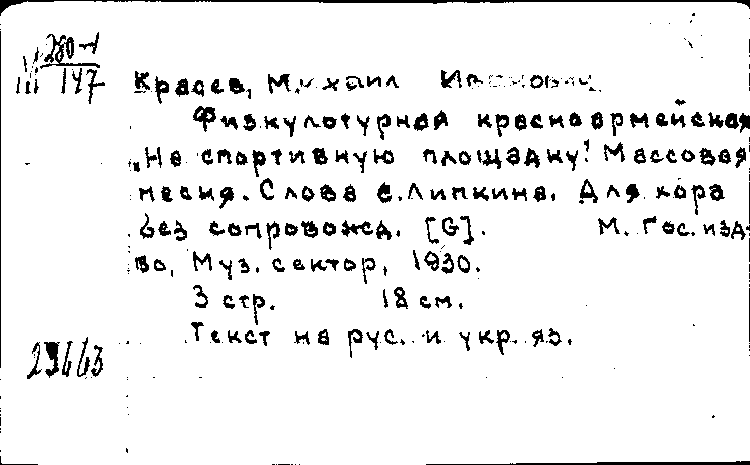 280-1
VIII 147
Красев, Михаил Иванович
Физкультурная красноармейская
„На спортивную площадку! Массовая
песня. Слова С. Липкина. Для хора
без сопровожд. [G]. М. Гос. изд-
во, Муз. сектор, 1930.
3 стр. 18 см.
Текст на рус. и укр. яз.
29663